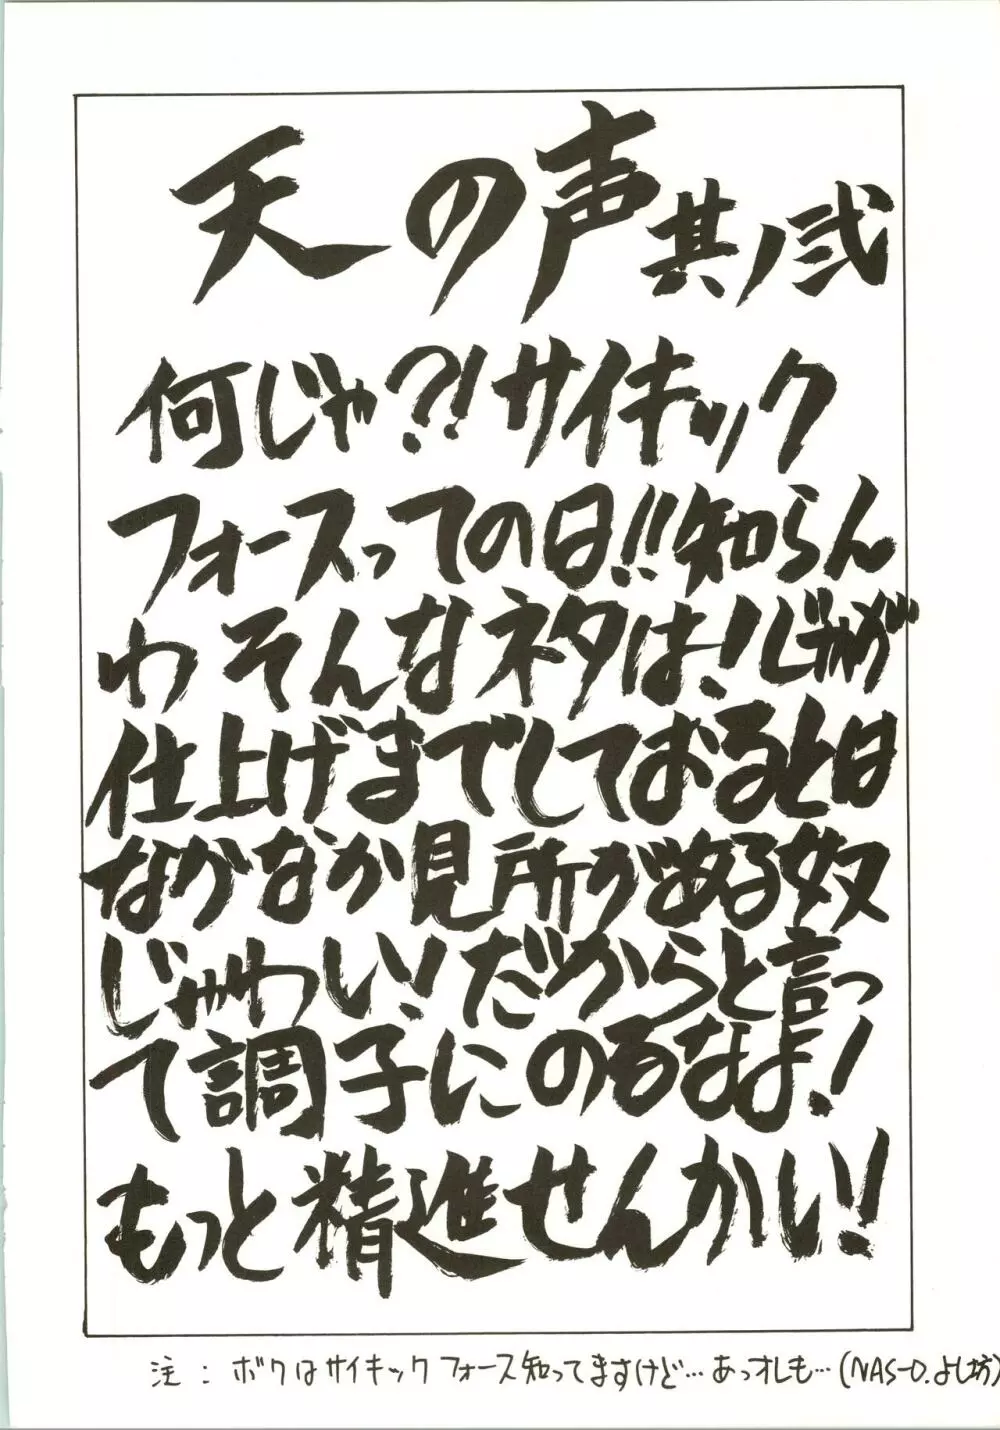 天の声 其ノ弐
何じゃ?!サイキック
フォースってのは!!知らん
わそんなネタは!じゃが
仕上げまでしておるとは
なかなか見所がある奴
じゃわい!だからと言っ
て調子にのるなよ!
もっと精進せんかい!
注:ボクはサイキックフォース知ってますけど…あっオレも…(NAS-O.よし坊)